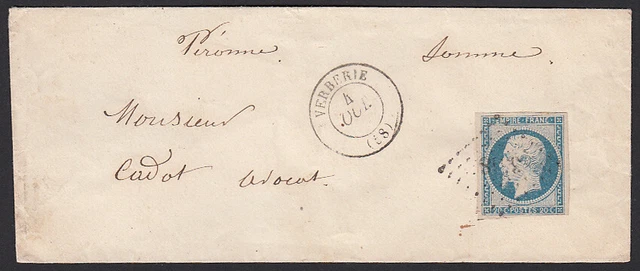 Péronne Somme
VERBERIE
4
(58)
Monsieur
Cadot Avocat
EMPIRE · FRANC ·
20 C · POSTES 20 C ·